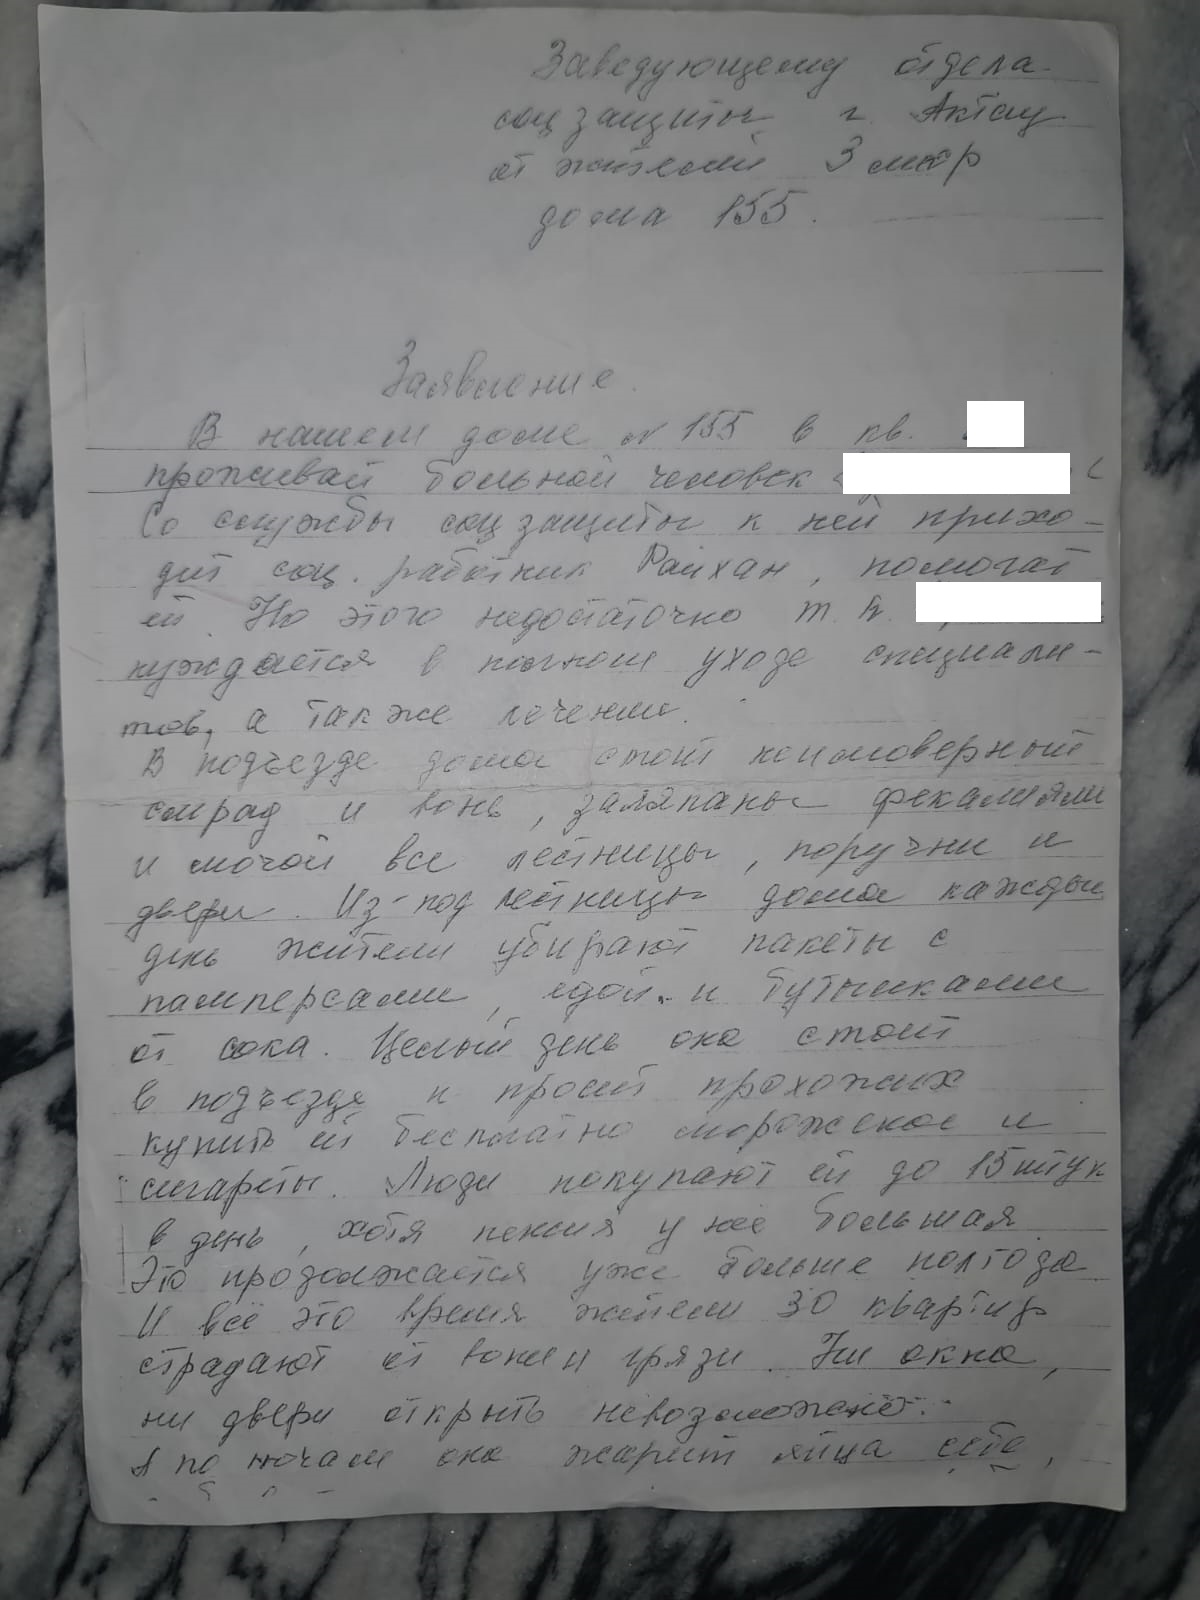 Заведующему отдела
соц защиты г. Актау
от жителей 3 мкр
дома 155.
Заявление.
В нашем доме № 155 в кв.
проживай больной человек
Со службы соц защиты к ней прихо-
дит соц. работник Райхан, помогат
ей. Но этого недостаточно т. к.
нуждается в полном уходе специали-
тов, а также лечении.
В подъезде дома стоит неимоверный
смрад и вонь, заляпаны фекалиями
и мочой все лестницы, поручни и
двери. Из-под лестницы дома каждый
день жители убирают пакеты с
памперсами, едой и бутылками
от сока. Целый день она стоит
в подъезде и просит прохожих
купить ей бесплатно мороженое и
сигареты. Люди покупают ей до 15 штук
в день, хотя пенсия у неё большая.
Это продолжается уже больше полгода
И всё это время жители 30 квартир
страдают от вони и грязи. Ни окна,
ни двери открыть невозможно.
А по ночам она жарит яйца себе,